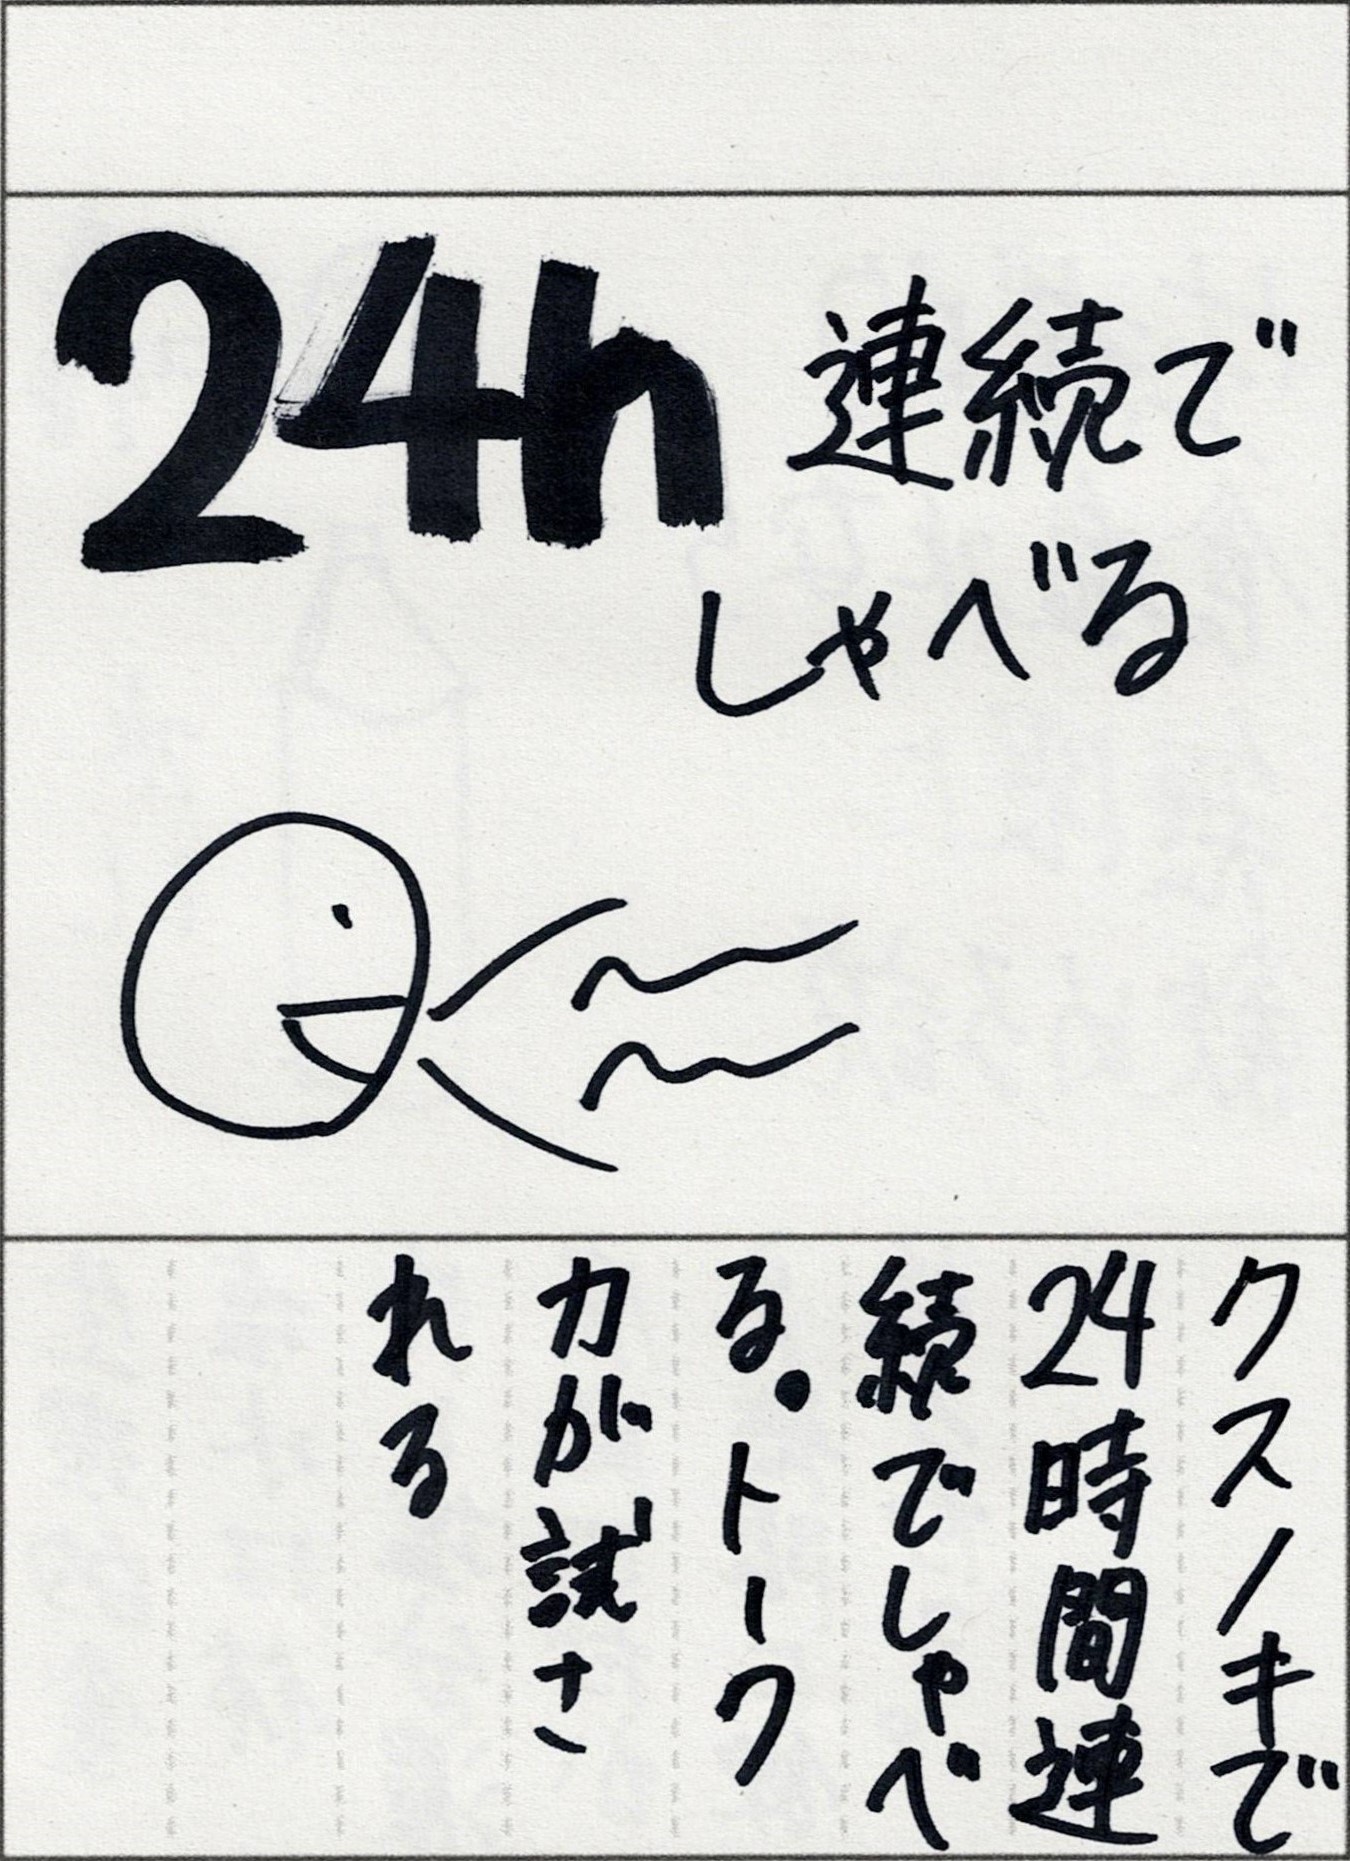 24h 連続で
しゃべる
クスノキで
24時間連
続でしゃべ
る。トーク
力が試さ
れる